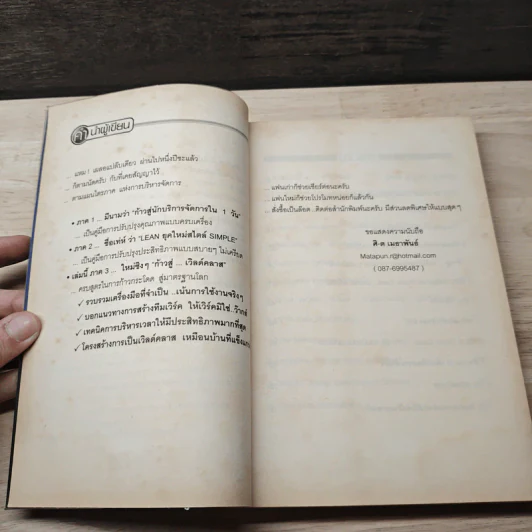 คำนำผู้เขียน
... แหม ! เผลอแปล๊บเดียว ผ่านไปหนึ่งปีซะแล้ว
... ก็ตามนัดครับ กับที่เคยสัญญาไว้ ...
ตามแผนไตรภาค แห่งการบริหารจัดการ
• ภาค 1 ... มีนามว่า "ก้าวสู่นักบริการจัดการใน 1 วัน"
... เป็นคู่มือการปรับปรุงคุณภาพแบบครบเครื่อง
• ภาค 2 ... ชื่อเท่ห์ ว่า "LEAN ยุคใหม่สไตล์ SIMPLE"
... เป็นคู่มือการปรับปรุงประสิทธิภาพแบบสบายๆ ไม่เครียด
• เล่มนี้ ภาค 3 ... ใหม่ซิงๆ "ก้าวสู่ ... เวิลด์คลาส"
... ครบสูตรในการก้าวกระโดด สู่มาตรฐานโลก
✓ รวบรวมเครื่องมือที่จำเป็น ..เน้นการใช้งานจริงๆ
✓ บอกแนวทางการสร้างทีมเวิร์ค ให้เวิร์คมิใช่..ว๊ากส์
✓ เทคนิคการบริหารเวลาให้มีประสิทธิภาพมากที่สุด
✓ โครงสร้างการเป็นเวิลด์คลาส เหมือนบ้านที่แข็งแกร่ง
... แฟนเก่าก็ช่วยเชียร์ต่อนะครับ
... แฟนใหม่ก็ช่วยโปรโมทหน่อยก็แล้วกัน
... สั่งซื้อเป็นล๊อต ..ติดต่อสำนักพิมพ์นะครับ มีส่วนลดพิเศษให้แบบสุดๆ
ขอแสดงความนับถือ
เมธาพันธ์
Matapun.r@hotmail.com
( 087-6995487 )